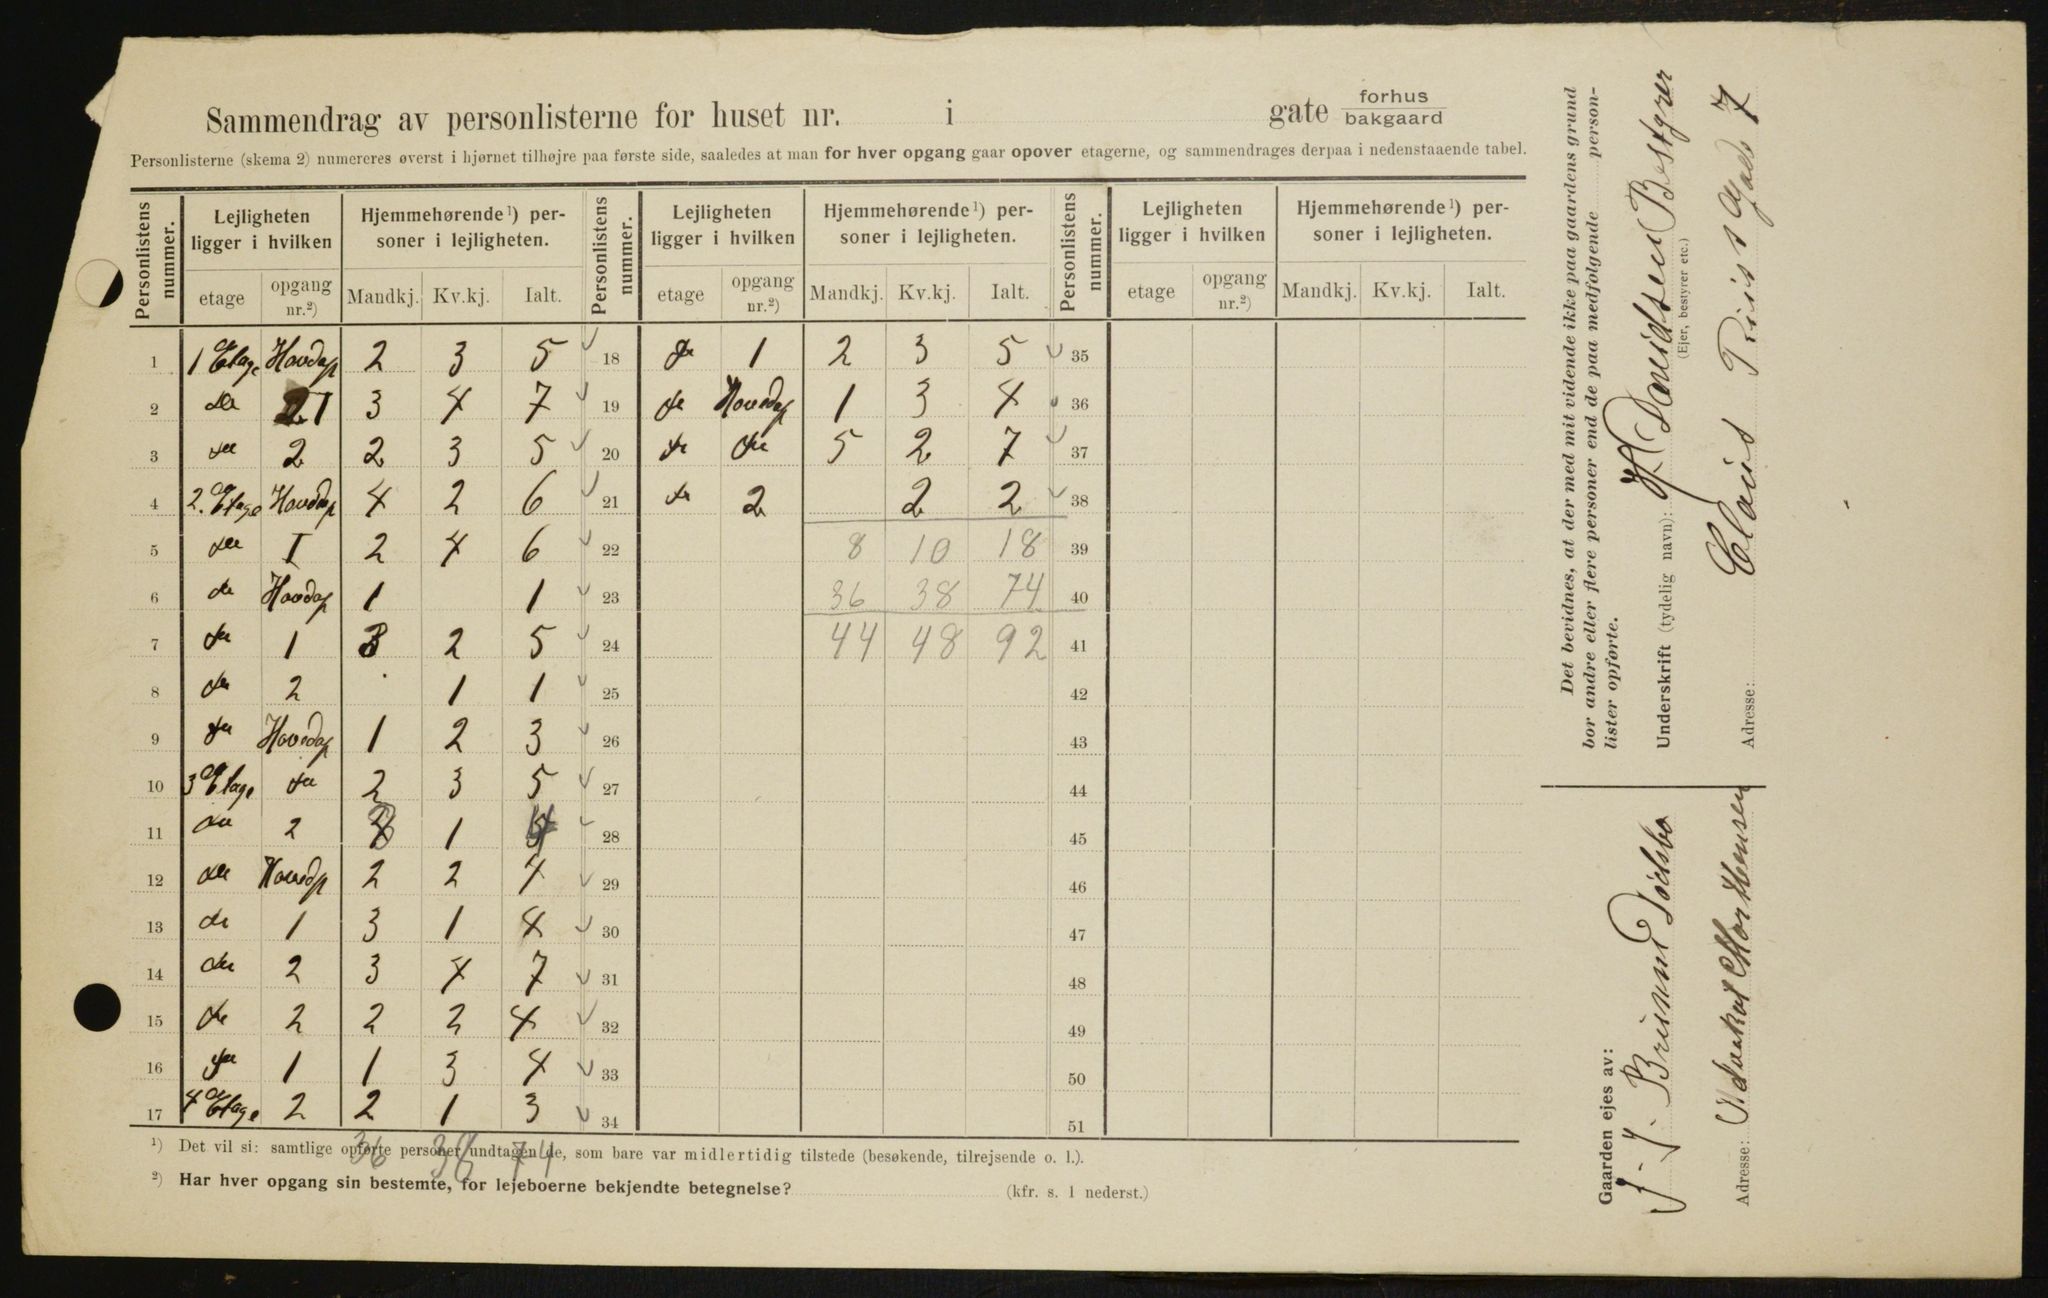 Sammendrag av personlisterne for huset nr. i gate forhus bakgaard
Personlisterne (skema 2) numereres øverst i hjørnet tilhøjre paa første side, saaledes at man for hver opgang gaar opover etagerne, og sammendrages derpaa i nedenstaaende tabel.
Personlistens nummer. Lejligheten ligger i hvilken Hjemmehørende ¹) personer i lejligheten. Personlistens nummer. Lejligheten ligger i hvilken Hjemmehørende ¹) personer i lejligheten. Personlistens nummer. Lejligheten ligger i hvilken Hjemmehørende ¹) personer i lejligheten.
etage opgang nr.²) Mandkj. Kv.kj. Ialt. etage opgang nr.²) Mandkj. Kv.kj. Ialt. etage opgang nr.²) Mandkj. Kv.kj. Ialt.
1 1 Etage Hovdop 2 3 5 18 do 1 2 3 5 35
2 do 1 3 4 7 19 do Hovedop 1 3 4 36
3 do 2 2 3 5 20 do do 5 2 7 37
4 2. Etage Hovdop 4 2 6 21 do 2 2 2 38
5 do I 2 4 6 22 8 10 18 39
6 do Hovdop 1 1 23 36 38 74 40
7 do 1 3 2 5 24 44 48 92 41
8 do 2 1 1 25 42
9 do Hovedop 1 2 3 26 43
10 3 Etage do 2 3 5 27 44
11 do 2 3 1 4 28 45
12 do Hovedop 2 2 4 29 46
13 do 1 3 1 4 30 47
14 do 2 3 4 7 31 48
15 do 2 2 2 4 32 49
16 do 1 1 3 4 33 50
17 4 Etage 2 2 1 3 34 51
36 38 74
¹) Det vil si: samtlige opførte personer undtagen de, som bare var midlertidig tilstede (besøkende, tilrejsende o. l.).
²) Har hver opgang sin bestemte, for lejeboerne bekjendte betegnelse? (kfr. s. 1 nederst.)
Det bevidnes, at der med mit vidende ikke paa gaardens grund
bor andre eller flere personer end de paa medfølgende person-
lister opførte.
Underskrift (tydelig navn): H. Davidsen Bestyrer
(Ejer, bestyrer etc.)
Adresse: Claus Riis's Gade 7
Gaarden ejes av:
J. J.
Adresse: Morthensen